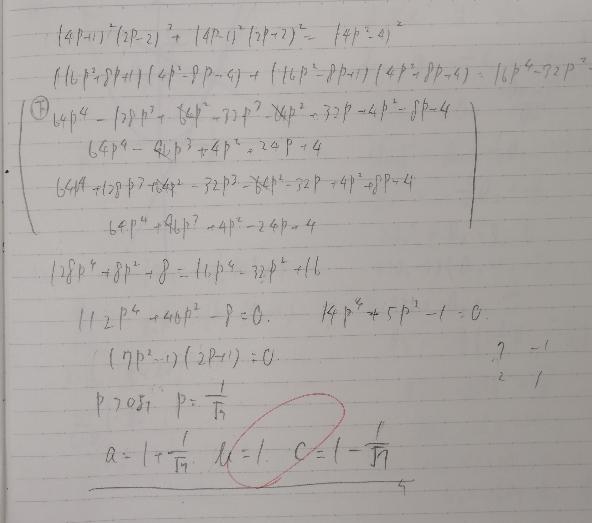 (4p+1)²(2p-2)² + (4p-1)²(2p+2)² = (4p²-4)²
(16p²+8p+1)(4p²-8p+4) + (16p²-8p+1)(4p²+8p+4) = 16p⁴-32p²
64p⁴ - 128p³ + 64p² + 32p³ - 64p² + 32p + 4p² - 8p + 4
64p⁴ - 96p³ + 4p² + 24p + 4
64p⁴ + 128p³ + 64p² - 32p³ - 64p² - 32p + 4p² + 8p + 4
64p⁴ + 96p³ + 4p² - 24p + 4
128p⁴ + 8p² + 8 = 16p⁴ - 32p² + 16
112p⁴ + 40p² - 8 = 0. 14p⁴ + 5p² - 1 = 0.
(7p²-1)(2p+1) = 0.
7 -1
2 1
p>0より p = 1/√7
a = 1 + 1/√7 b = 1. c = 1 - 1/√7